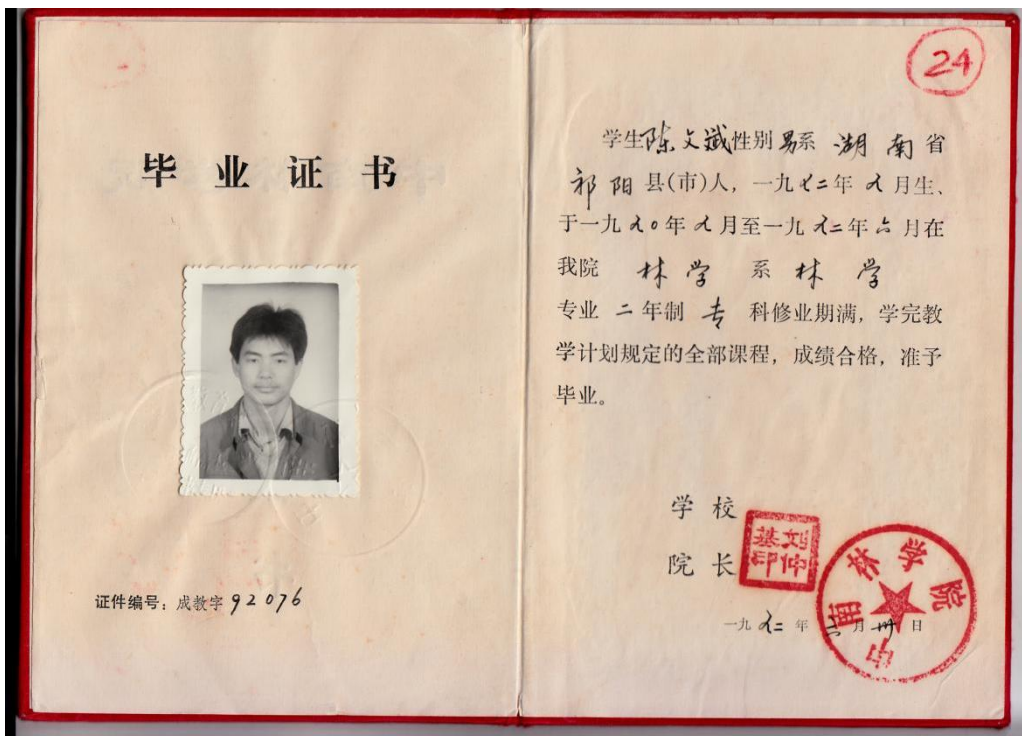 毕业证书
证件编号：成教字92076
24
学生陈文斌性别男系湖南省
祁阳县(市)人，一九七二年九月生、
于一九九〇年九月至一九九二年六月在
我院 林学 系 林学
专业 二年制 专 科修业期满，学完教
学计划规定的全部课程，成绩合格，准予
毕业。
学校
院长
刘仲基印
中南林学院
一九九二年六月卅日